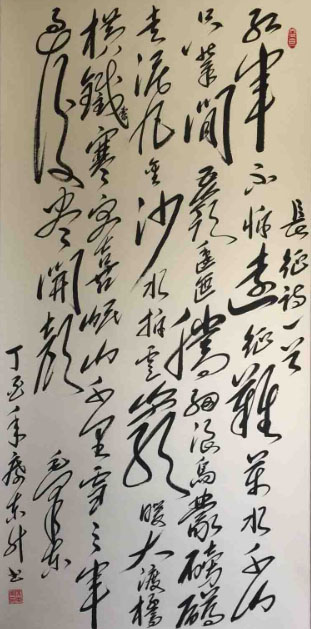 長征詩一首
红军不怕遠征難萬水千山
只等閒五嶺逶迤騰細浪烏蒙磅礴
走泥丸金沙水拍雲崖暖大渡橋
横鐵索寒更喜岷山千里雪三军
过后尽開顏
毛泽东
丁酉年东升书